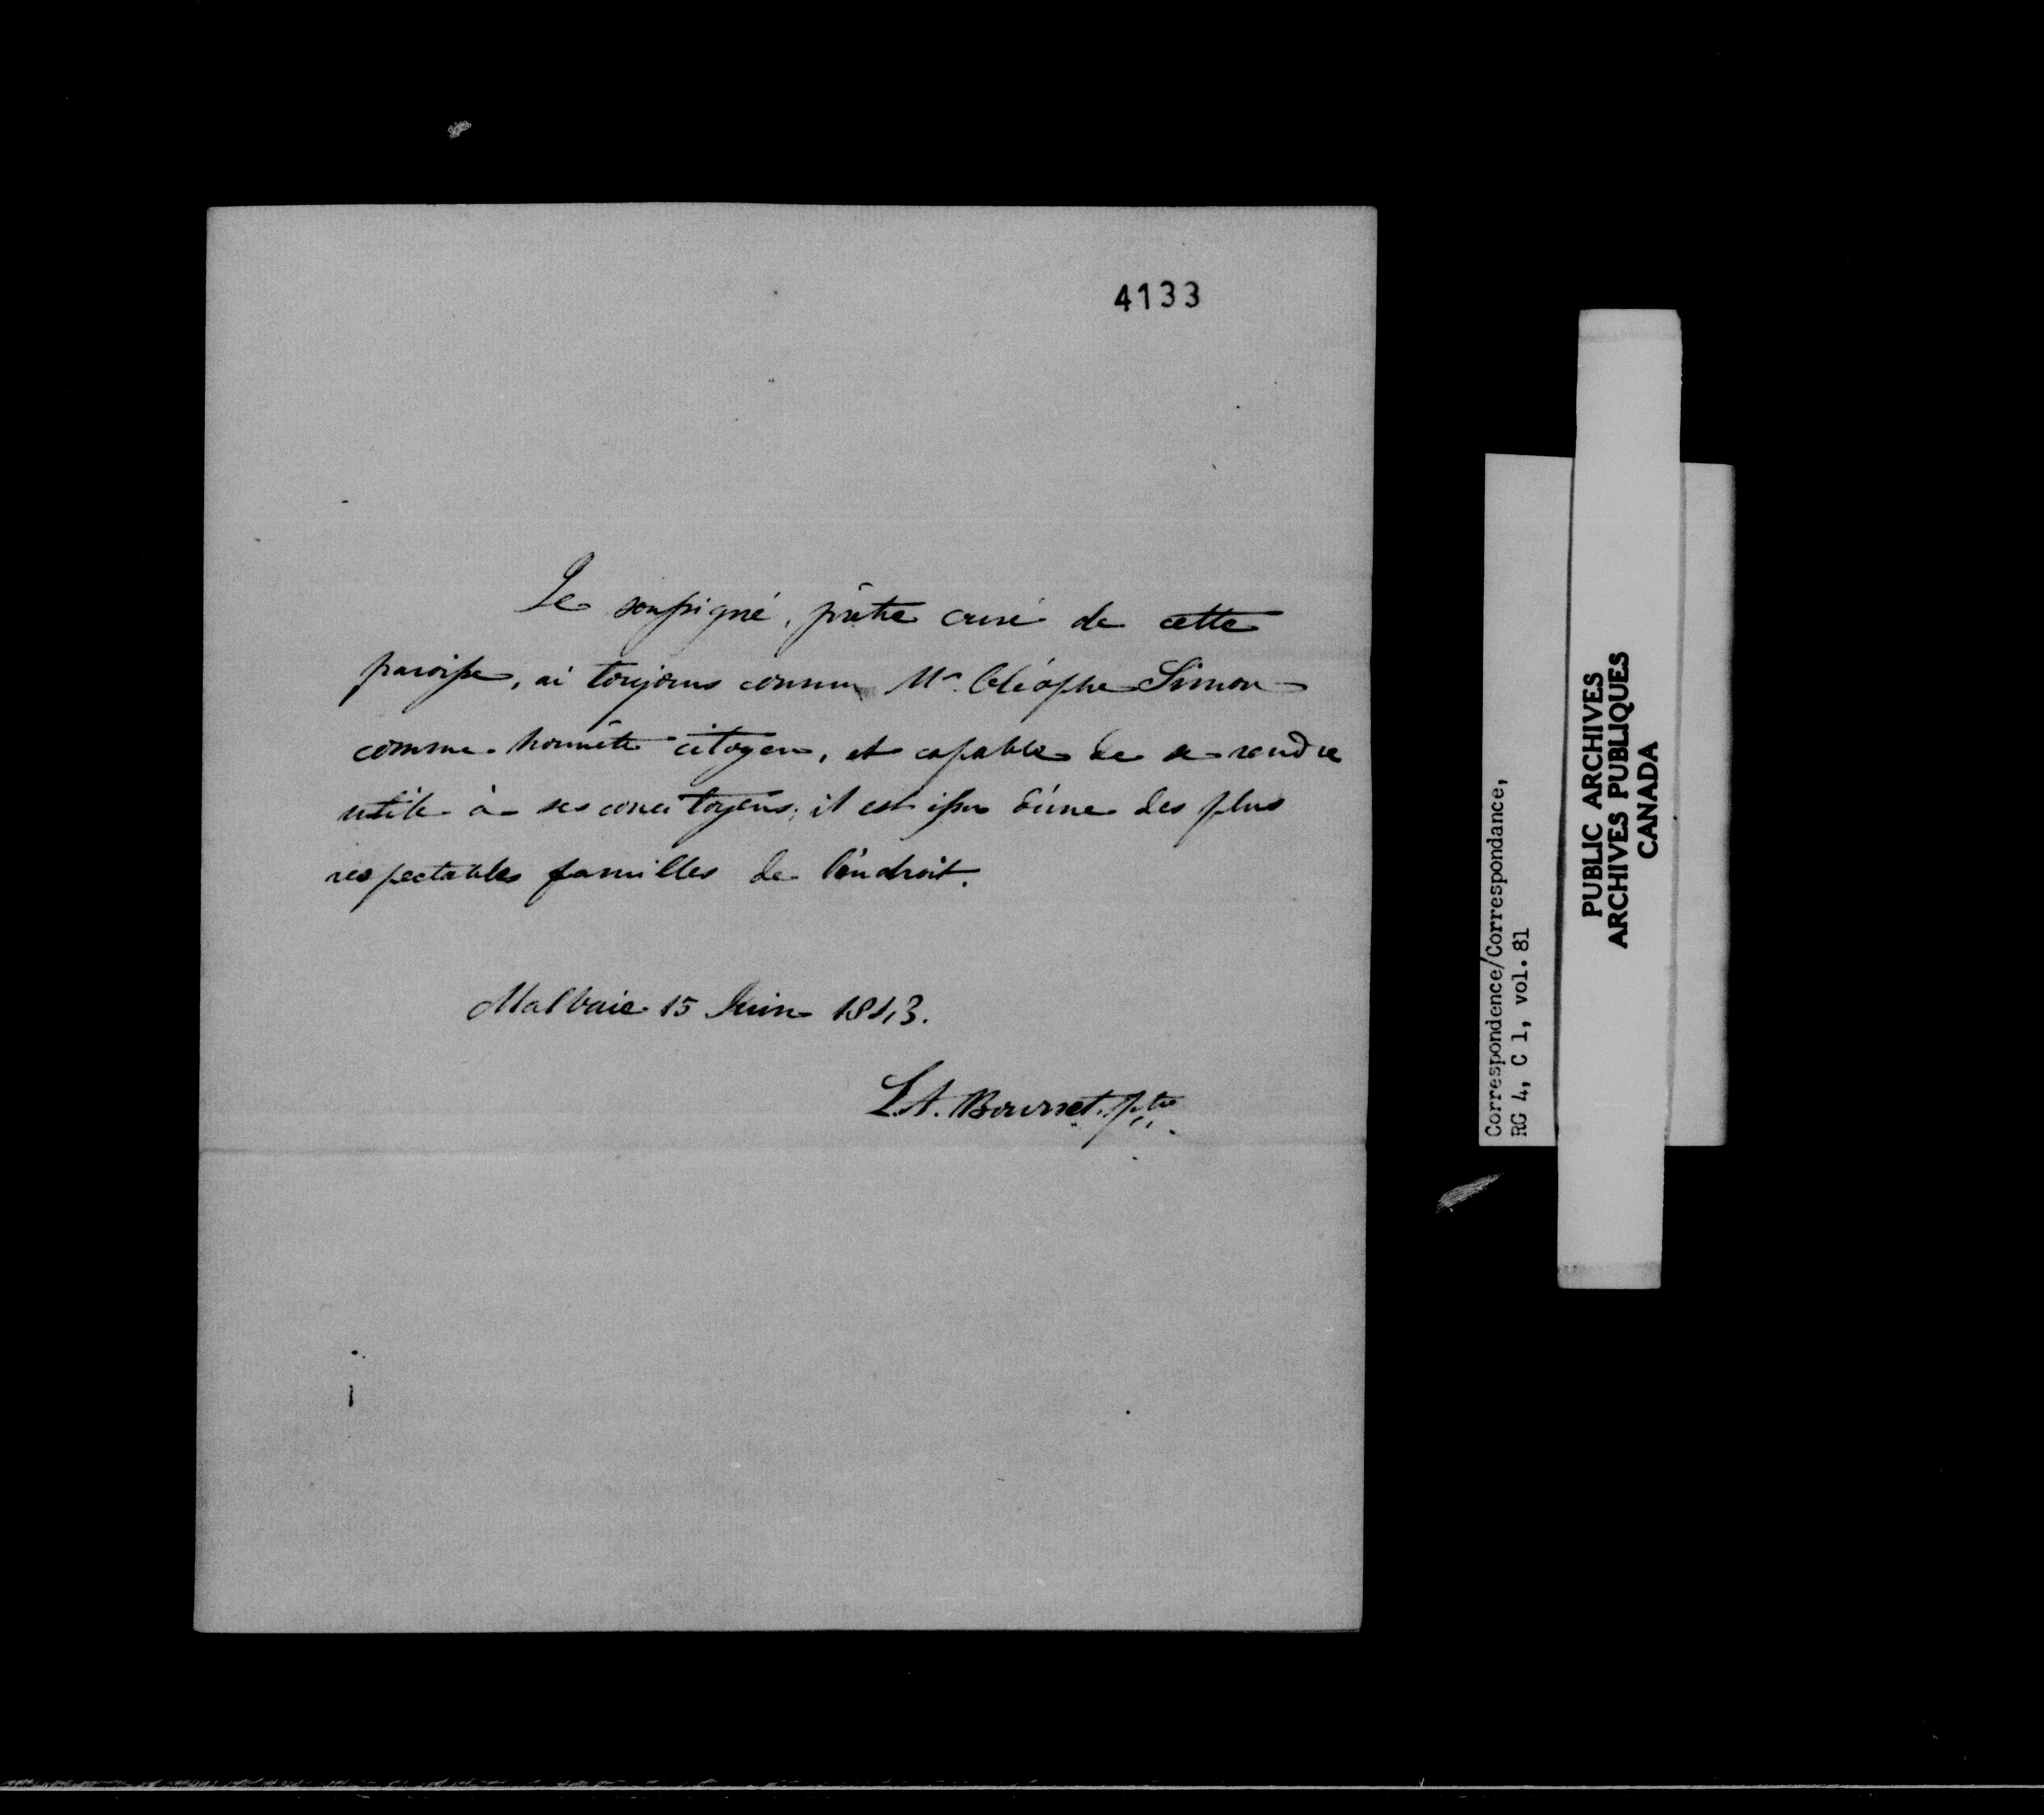 4133
Je soussigné, prêtre curé de cette
paroisse, ai toujours connu Mr. Cléophe Simon
comme honnête citoyen, et capable de se rendre
utile à ses concitoyens; il est issu d'une des plus
respectables familles de l'endroit.
Malbaie 15 Juin 1843.
L.A. Bourret. ptre
Correspondence/Correspondance,
RG 4, C 1, vol. 81
PUBLIC ARCHIVES
ARCHIVES PUBLIQUES
CANADA